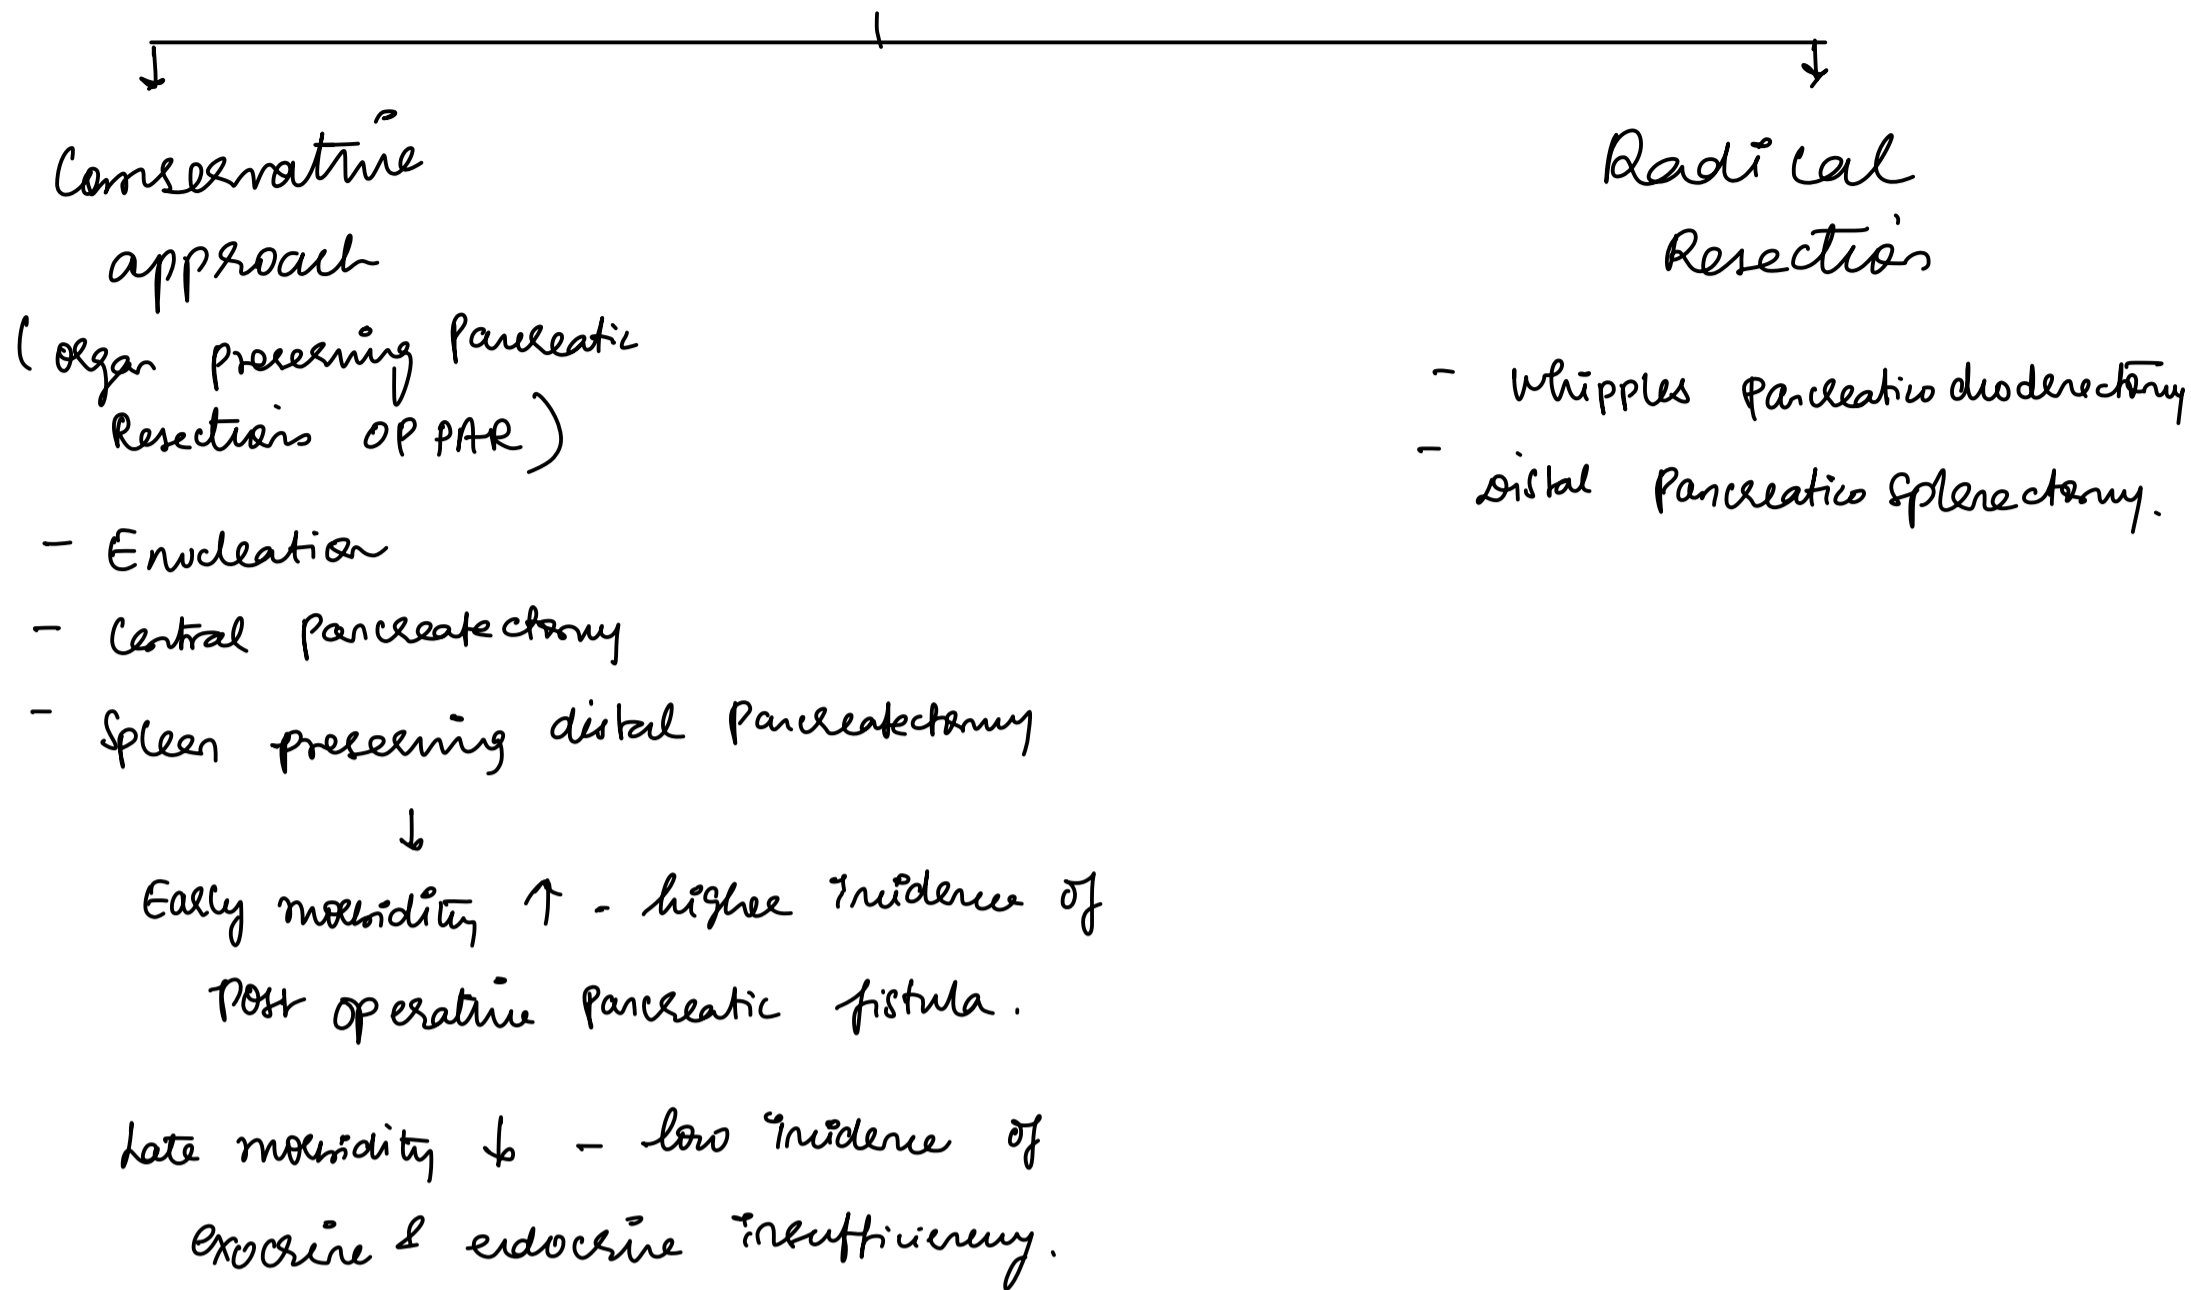 Conservative
approach
(organ preserving Pancreatic
Resections OPPAR)
- Enucleation
- Central Pancreatectomy
- Spleen preserving distal Pancreatectomy
↓
Early morbidity ↑ - higher incidence of
Post operative Pancreatic fistula.
Late morbidity ↓ - low incidence of
exocrine & endocrine insufficiency.
Radical
Resection
- Whipples Pancreatico duodenectomy
- Distal Pancreatico Splenectomy.